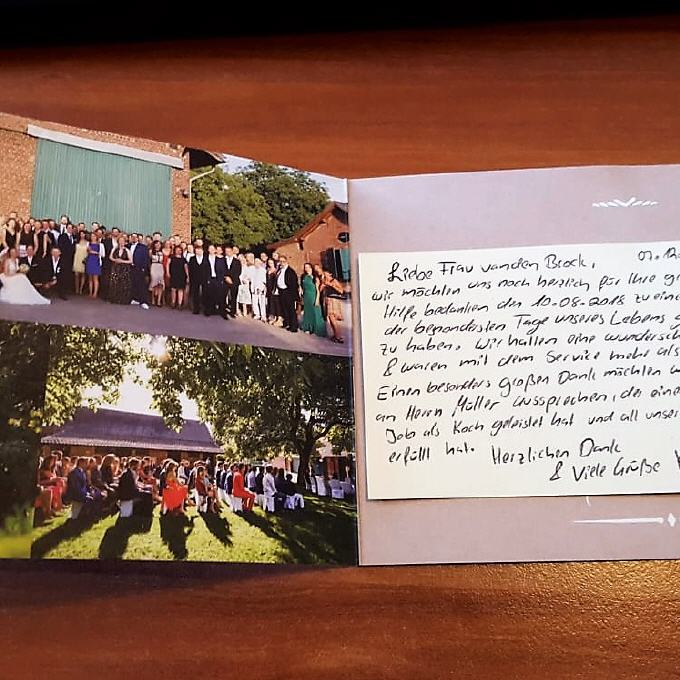 Liebe Frau van den Brock, 01.12
wir möchten uns noch herzlich für Ihre
Hilfe bedanken den 10.08.2018 zu
der besondersten Tage unseres Lebens
zu haben. Wir hatten eine
& waren mit dem Service mehr als
Einen besonders großen Dank möchten
an Herrn Müller aussprechen, der
Job als Koch geleistet hat und all
erfüllt hat. Herzlichen Dank
& Viele Grüße